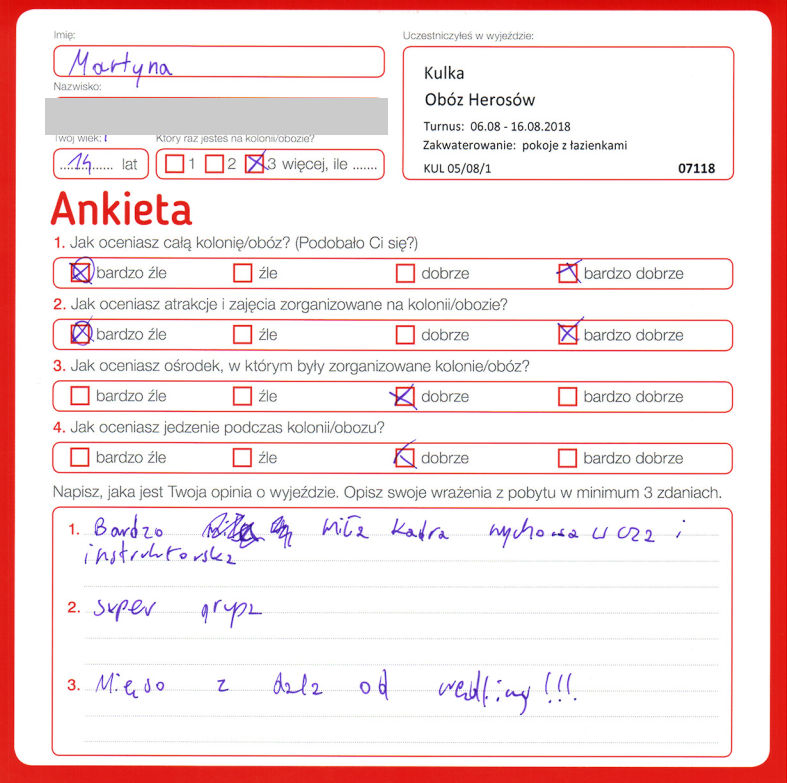 Imię:
Martyna
Nazwisko:
Twój wiek:
Który raz jesteś na kolonii/obozie?
14 lat
1 2 3 więcej, ile .......
Uczestniczyłeś w wyjeździe:
Kulka
Obóz Herosów
Turnus: 06.08 - 16.08.2018
Zakwaterowanie: pokoje z łazienkami
KUL 05/08/1 07118
Ankieta
1. Jak oceniasz całą kolonię/obóz? (Podobało Ci się?)
bardzo źle źle dobrze bardzo dobrze
2. Jak oceniasz atrakcje i zajęcia zorganizowane na kolonii/obozie?
bardzo źle źle dobrze bardzo dobrze
3. Jak oceniasz ośrodek, w którym były zorganizowane kolonie/obóz?
bardzo źle źle dobrze bardzo dobrze
4. Jak oceniasz jedzenie podczas kolonii/obozu?
bardzo źle źle dobrze bardzo dobrze
Napisz, jaka jest Twoja opinia o wyjeździe. Opisz swoje wrażenia z pobytu w minimum 3 zdaniach.
1. Bardzo miła kadra wychowawcza i
instruktorska
2. super grupa
3. Mięso z dala od wędliny!!!